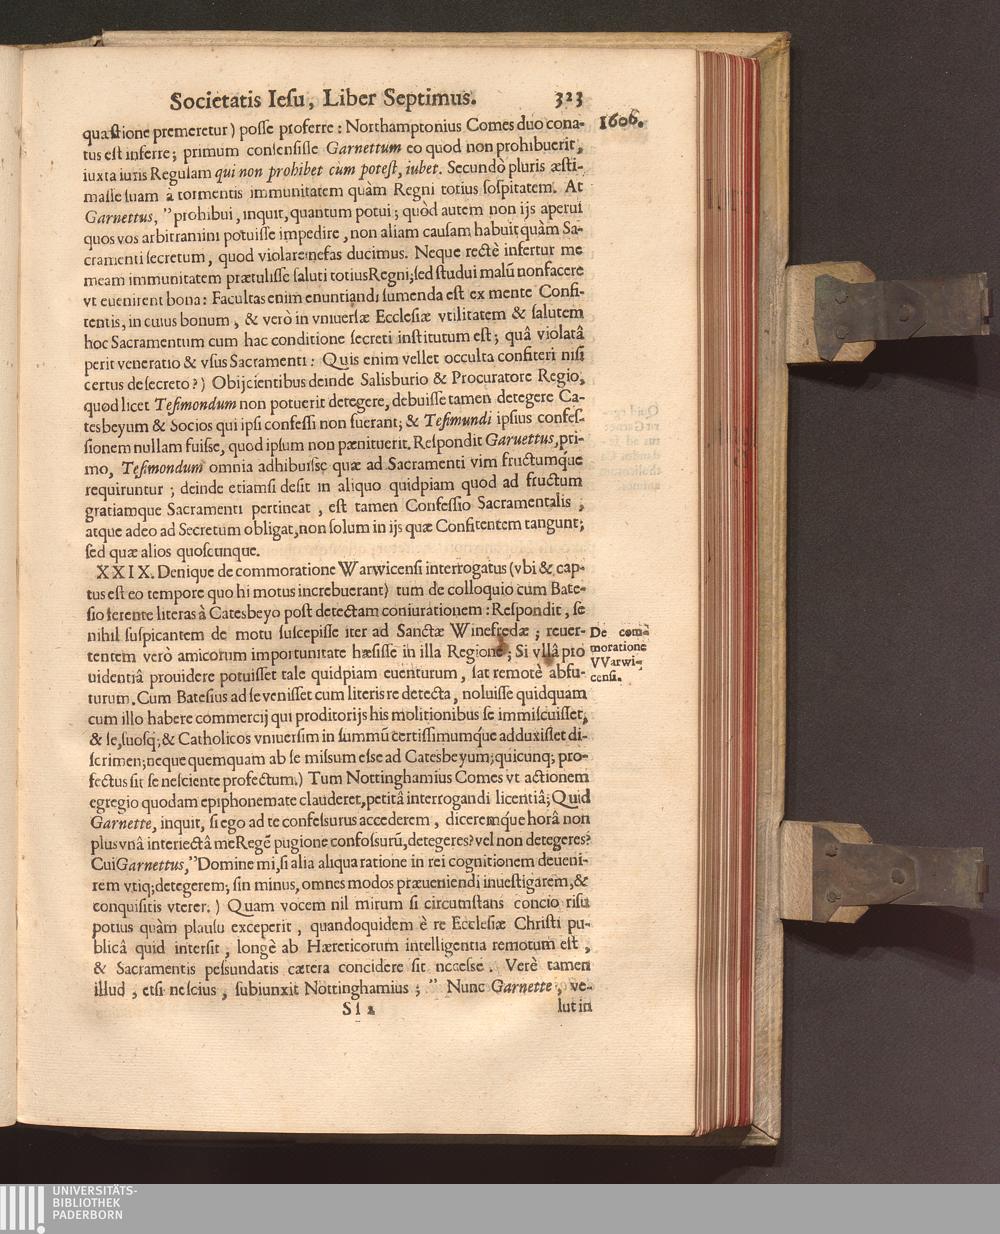 Societatis Iesu, Liber Septimus. 323
1606.
quæstione premeretur) posse proferre: Northamptonius Comes duo cona-
tus est inferre; primum consensisse Garnettum eo quod non prohibuerit,
iuxta iuris Regulam qui non prohibet cùm potest, iubet. Secundò pluris æsti-
masse suam à tormentis immunitatem quàm Regni totius sospitatem. At
Garnettus, ”prohibui, inquit, quantum potui; quòd autem non ijs aperui
quos vos arbitramini potuisse impedire, non aliam causam habui quàm Sa-
cramenti secretum, quod violare nefas ducimus. Neque rectè infertur me
meam immunitatem prætulisse saluti totius Regni; sed studui malũ non facere
vt euenirent bona: Facultas enim enuntiandi sumenda est ex mente Confi-
tentis, in cuius bonum, & verò in vniuersæ Ecclesiæ vtilitatem & salutem
hoc Sacramentum cum hac conditione secreti institutum est; quâ violatâ
perit veneratio & vsus Sacramenti: Quis enim vellet occulta confiteri nisi
certus de secreto?) Obijcientibus deinde Salisburio & Procuratore Regio,
quod licet Tesimondum non potuerit detegere, debuisse tamen detegere Ca-
tesbeyum & Socios qui ipsi confessi non fuerant; & Tesimundi ipsius confes-
sionem nullam fuisse, quod ipsum non pænituerit. Respondit Garuettus, pri-
mo, Tesimondum omnia adhibuisse quæ ad Sacramenti vim fructumque
requiruntur; deinde etiamsi desit in aliquo quidpiam quod ad fructum
gratiamque Sacramenti pertineat, est tamen Confessio Sacramentalis,
atque adeo ad Secretum obligat, non solum in ijs quæ Confitentem tangunt;
sed quæ alios quoscunque.
XXIX. Denique de commoratione Warwicensi interrogatus (vbi & cap-
tus est eo tempore quo hi motus increbuerant) tum de colloquio cum Bate-
sio ferente literas à Catesbeyo post detectam coniurationem: Respondit, se
nihil suspicantem de motu suscepisse iter ad Sanctæ Winefredæ; reuer-
tentem verò amicorum importunitate hæsisse in illa Regione; Si vllâ pro
uidentiâ prouidere potuisset tale quidpiam euenturum, sat remotè abfu-
turum. Cum Batesius ad se venisset cum literis re detecta, noluisse quidquam
cum illo habere commercij qui proditorijs his molitionibus se immiscuisset,
& se, suosq; & Catholicos vniuersim in summũ certissimumque adduxisset di-
scrimen; neque quemquam ab se missum esse ad Catesbeyum; quicunq; pro-
fectus sit se nesciente profectum.) Tum Nottinghamius Comes vt actionem
egregio quodam epiphonemate clauderet, petitâ interrogandi licentiâ; Quid
Garnette, inquit, si ego ad te confessurus accederem, diceremque horâ non
plus vnâ interiectâ me Regẽ pugione confossurũ, detegeres? vel non detegeres?
Cui Garnettus, ”Domine mi, si alia aliqua ratione in rei cognitionem deueni-
rem vtiq; detegerem; sin minus, omnes modos præueniendi inuestigarem, &
conquisitis vterer.) Quam vocem nil mirum si circumstans concio risu
potius quàm plausu exceperit, quandoquidem è re Ecclesiæ Christi pu-
blicâ quid intersit, longè ab Hæreticorum intelligentia remotum est,
& Sacramentis pessundatis cætera concidere sit necesse. Verè tamen
illud, etsi nescius, subiunxit Nottinghamius; ” Nunc Garnette, ve-
Sſ 2 lut in
De com-
moratione
VVarwi-
censi.
UNIVERSITÄTS-
BIBLIOTHEK
PADERBORN